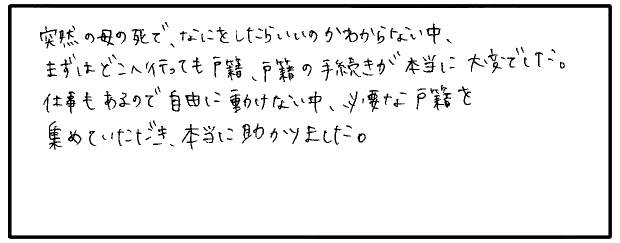 突然の母の死で、なにをしたらいいのかわからない中、
まずはどこへ行っても戸籍、戸籍の手続きが本当に大変でした。
仕事もあるので自由に動けない中、必要な戸籍を
集めていただき、本当に助かりました。